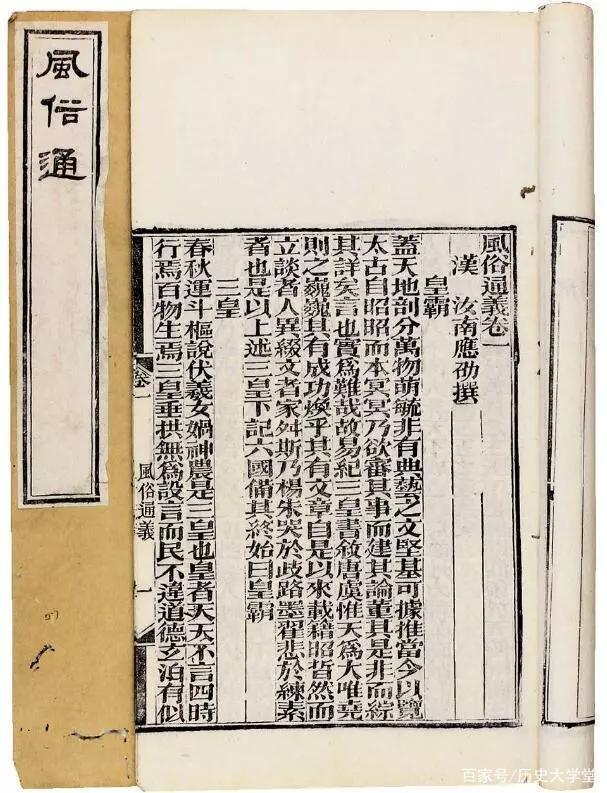 風俗通
風俗通義卷一
漢 汝南應劭撰
皇霸
蓋天地剖分萬物萌毓非有典藝之文堅基可據推當今以覽
太古自昭昭而本冥冥乃欲審其事而建其論董其是非而綜
其詳矣言也實為難哉故易紀三皇書敘唐虞惟天為大唯堯
則之巍巍其有成功煥乎其有文章自是以來載籍昭晳然而
立談者人異綴文者家舛斯乃楊朱哭於歧路墨翟悲於練素
者也是以上述三皇下記六國備其終始曰皇霸
三皇
春秋運斗樞說伏羲女媧神農是三皇也皇者天天不言四時
行焉百物生焉三皇垂拱無為設言而民不違道德玄泊有似
卷一 風俗通義 一
百家号/历史大学堂